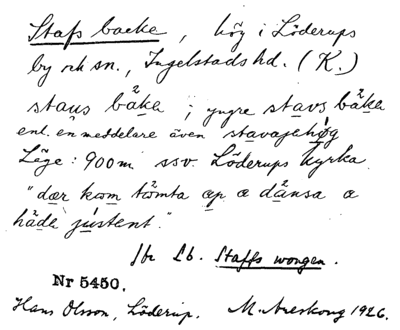 Stafs backe, hög i Löderups
by och sn., Ingelstads hd. (K.)
staus båka ; yngre stavs båka
enl. en meddelare även stavajehög
Läge: 900m ssv. Löderups kyrka.
"dær kwm tomta up a dånsa a
håde justent."
Jfr Lb. Staffs wongen.
Nr 5450.
Hans Olsson, Löderup. M. Areskoug 1926.